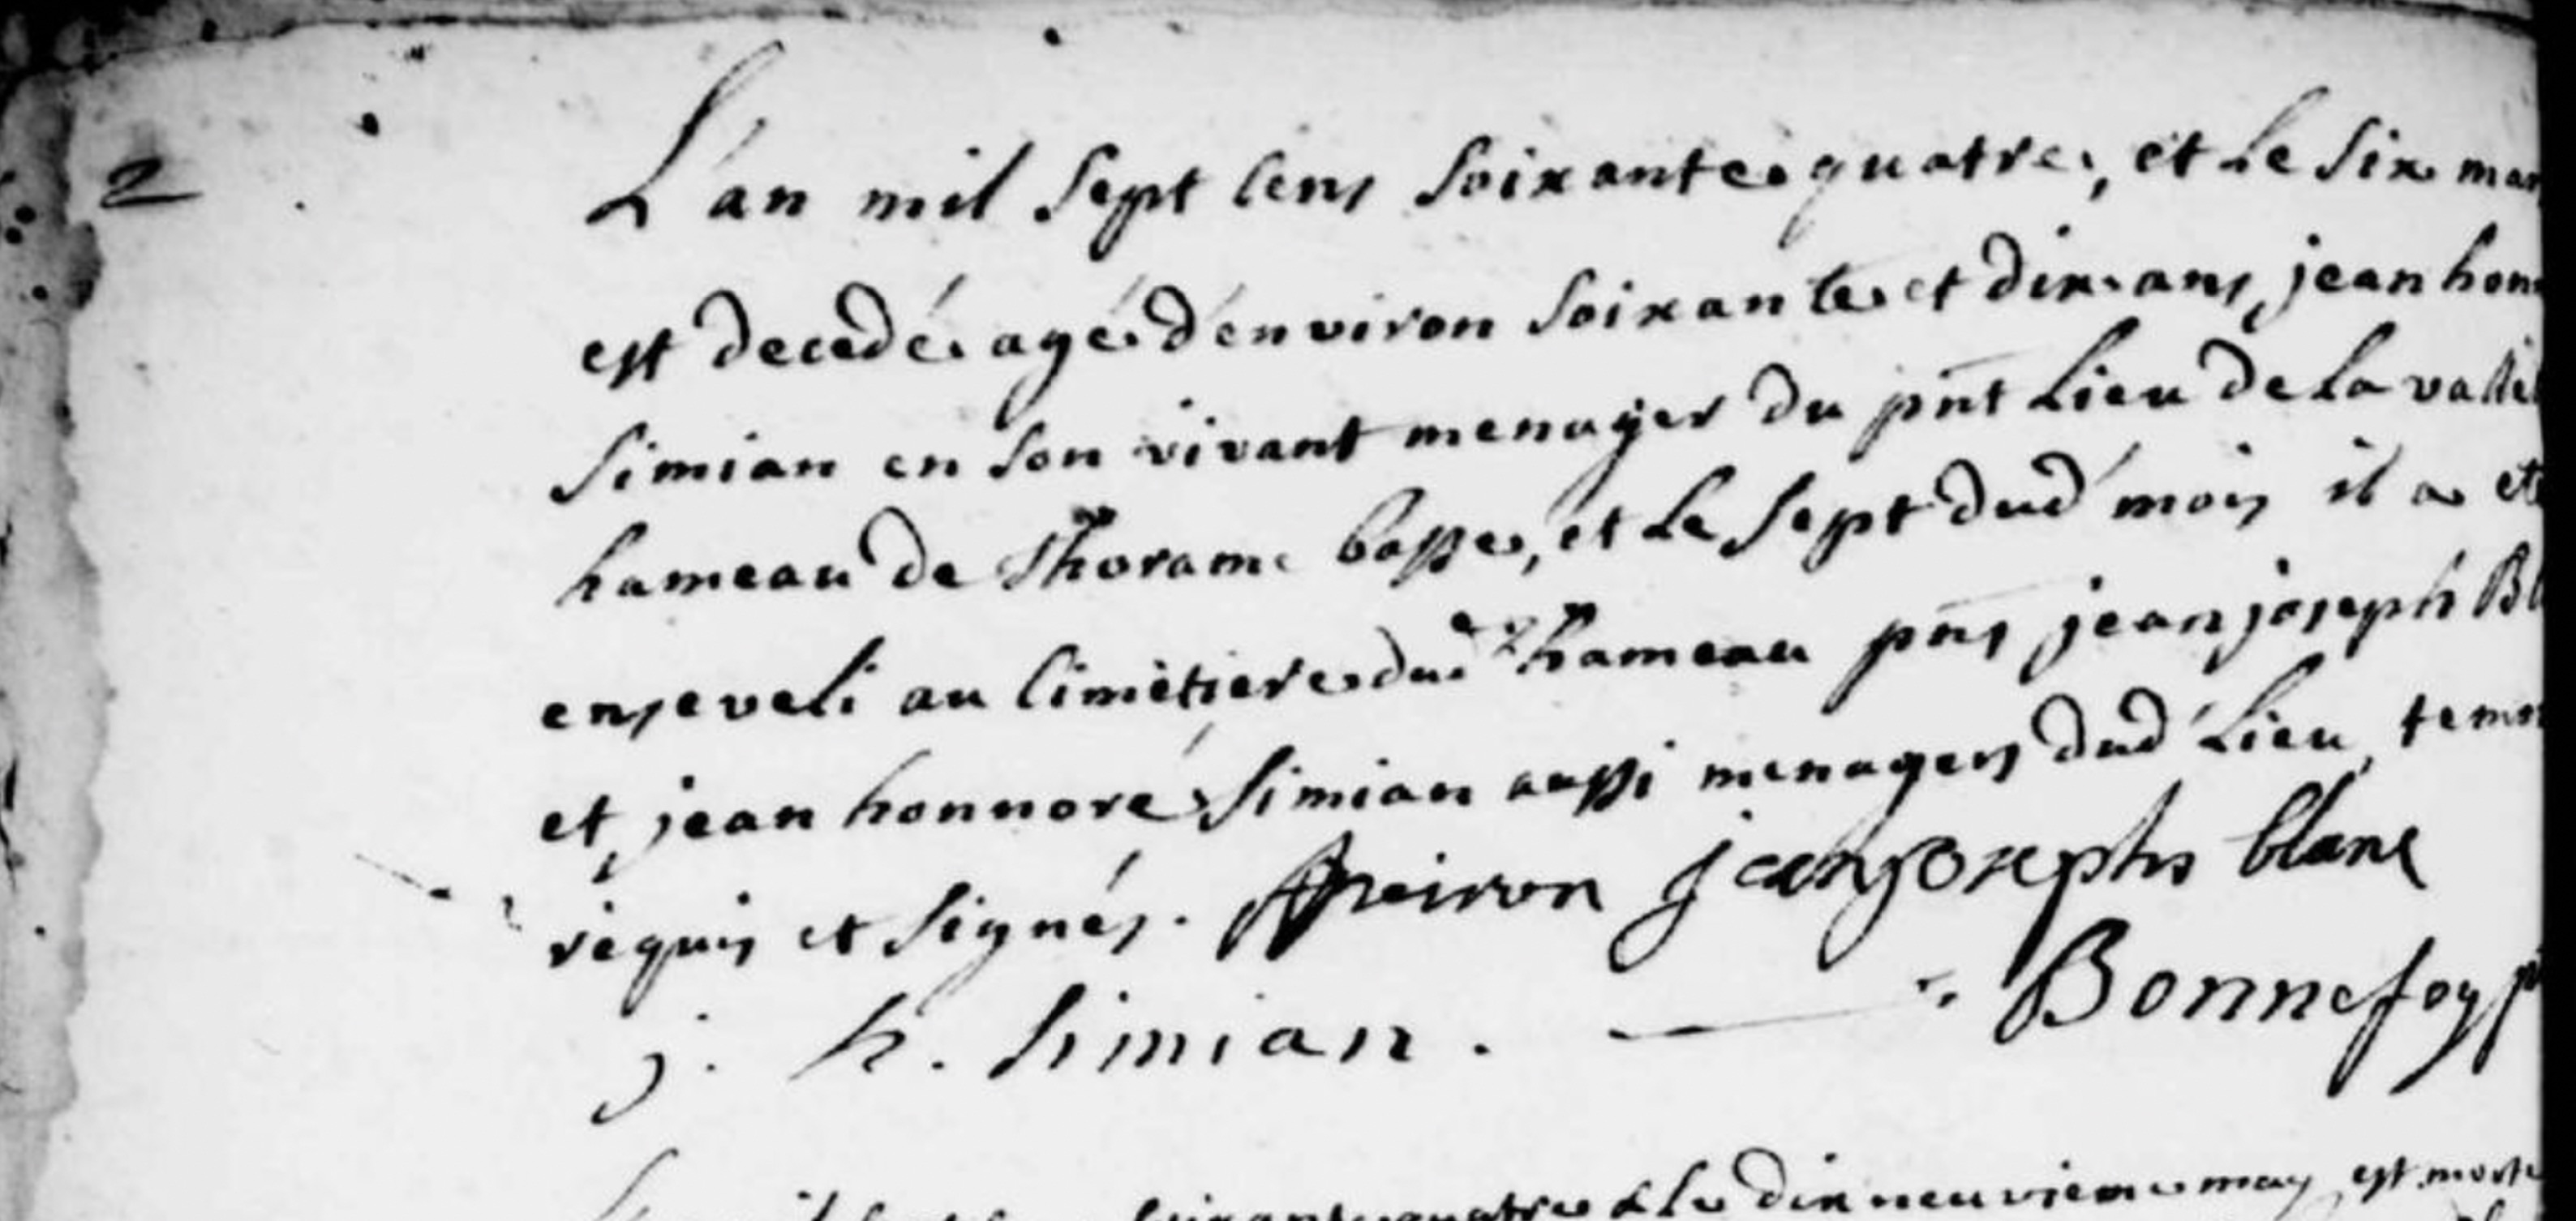 2
L'an mil sept cens soixante quatre, et le six mar
est decedé agé d'environ soixante et dix ans, jean hon
simian en son vivant menager du pnt lieu de la vallé
hameau de Thorame basse, et le sept dud mois il a eté
enseveli au cimetiere dud hameau pns jean joseph Bl
et jean honnoré simian aussi menagers dud lieu, temo
requis et signés. jean joseph blanc
j. h. simian. Bonnefoy p
soixante quatre & le dix neuvieme may est morte